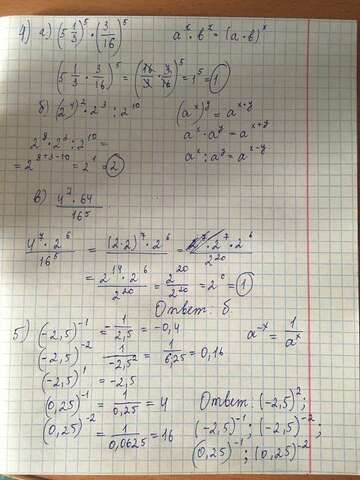 4) а) (5 1/3)^5 · (3/16)^5    a^x · b^x = (a · b)^x
(5 1/3 · 3/16)^5 = (16/3 · 3/16)^5 = 1^5 = 1
б) (2^4)^2 · 2^3 : 2^10    (a^x)^y = a^x·y
2^8 · 2^3 : 2^10 =    a^x · a^y = a^x+y
= 2^8+3-10 = 2^1 = 2    a^x : a^y = a^x-y
в) 4^7 · 64 / 16^5
4^7 · 2^6 / 16^5 = (2·2)^7 · 2^6 / 2^20
= 2^14 · 2^6 / 2^20 = 2^20 / 2^20 = 2^0 = 1
Ответ: б
5) (-2,5)^-1 = -1/2,5 = -0,4    a^-x = 1/a^x
(-2,5)^-2 = 1/-2,5^2 = 1/6,25 = 0,16
(-2,5)^1 = -2,5
(0,25)^-1 = 1/0,25 = 4    Ответ: (-2,5)^2;
(0,25)^-2 = 1/0,0625 = 16    (-2,5)^-1; (-2,5)^-2;
(0,25)^-1; (0,25)^-2